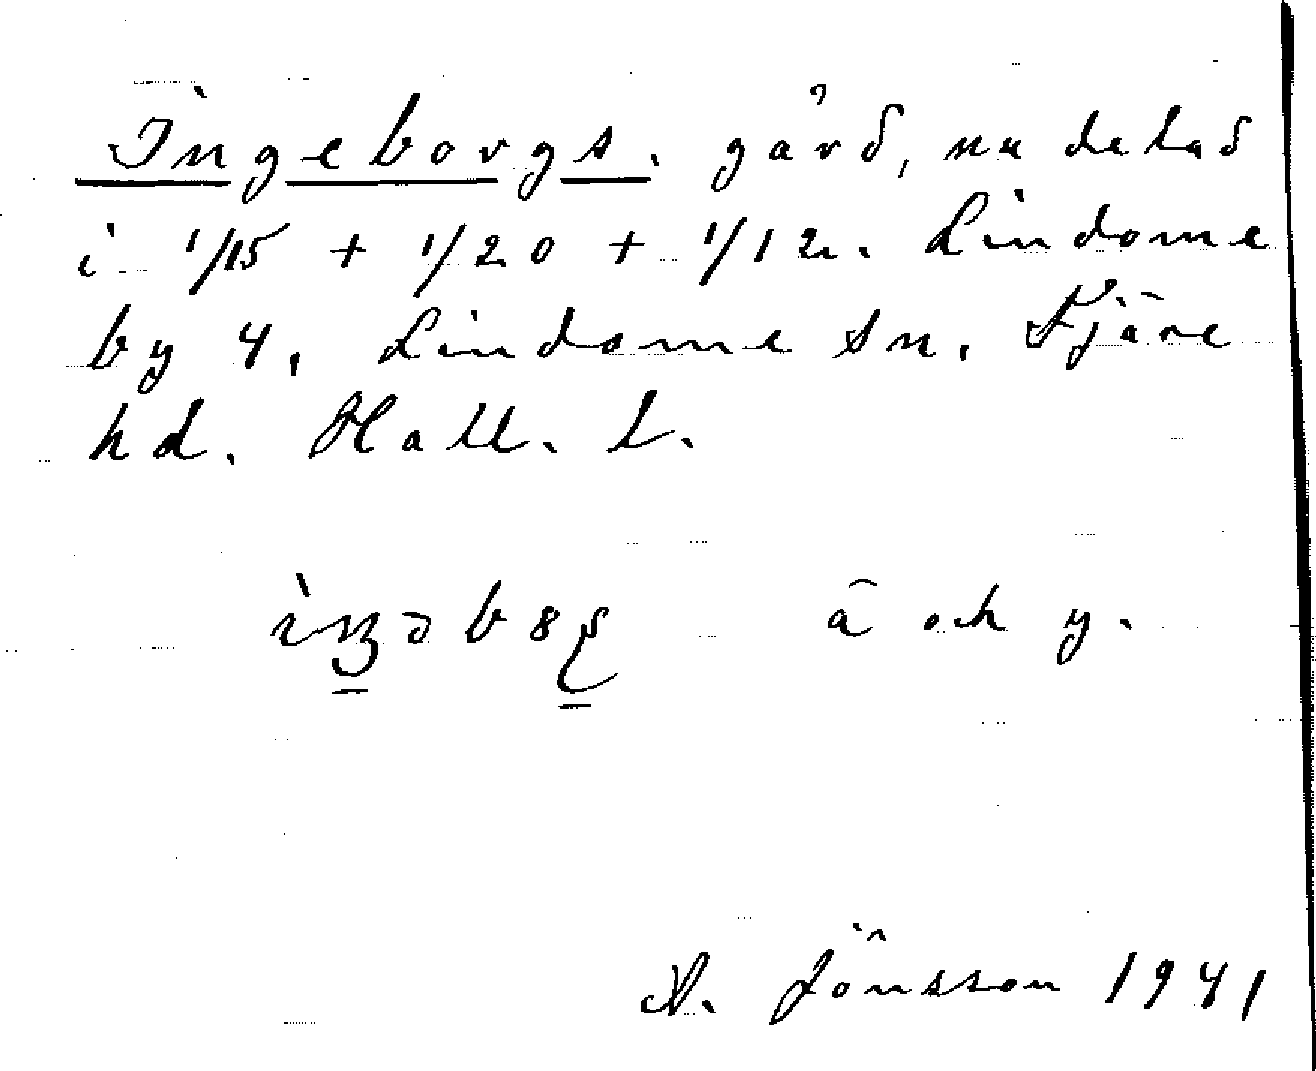 Ingeborgs. gård, nu delad
i 1/15 + 1/20 + 1/12. Lindome
by 4, Lindome sn. Fjäre
hd. Hall. L.
ä och y.
A. Jönsson 1941